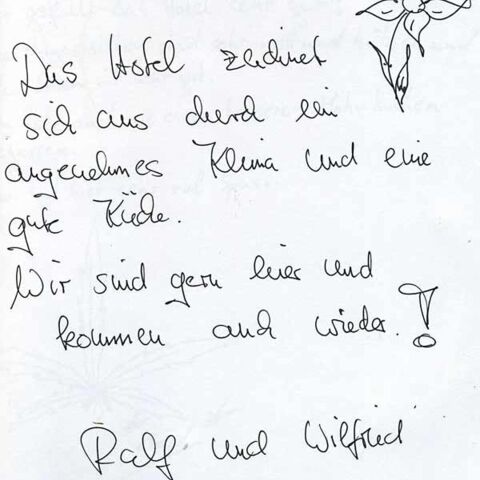 Das Hotel zeichnet
sich aus durch ein
angenehmes Klima und eine
gute Küche.
Wir sind gern hier und
kommen auch wieder. !
Ralf und Wilfried